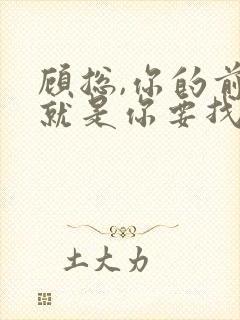 顾总,你的前
就是你要找
土大力